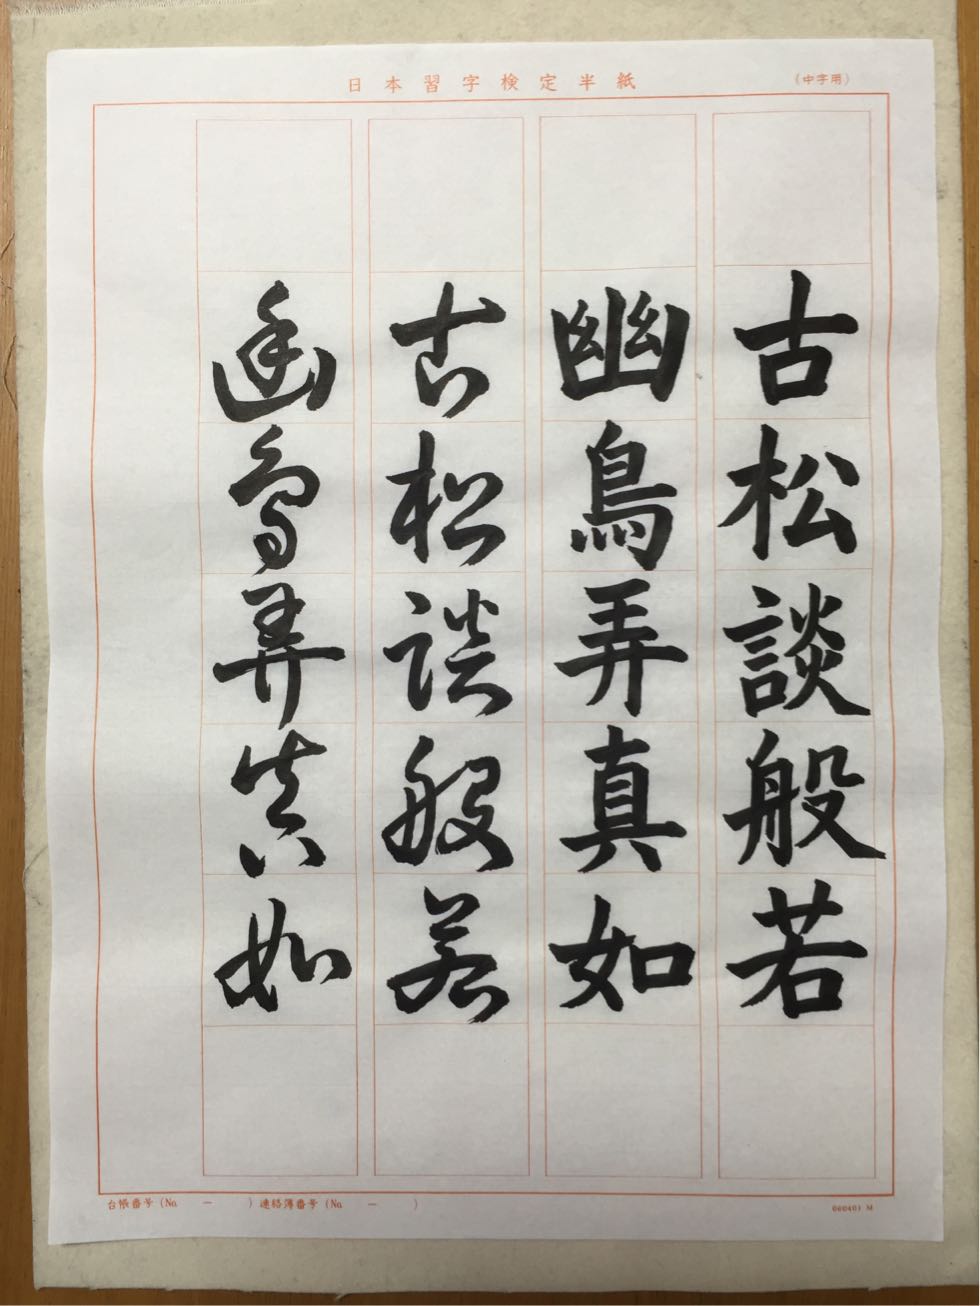 日本習字検定半紙
(中字用)
古松談般若
幽鳥弄真如
古松談般若
幽鳥弄真如
台帳番号(No. － )連絡簿番号(No. － )
060401 M